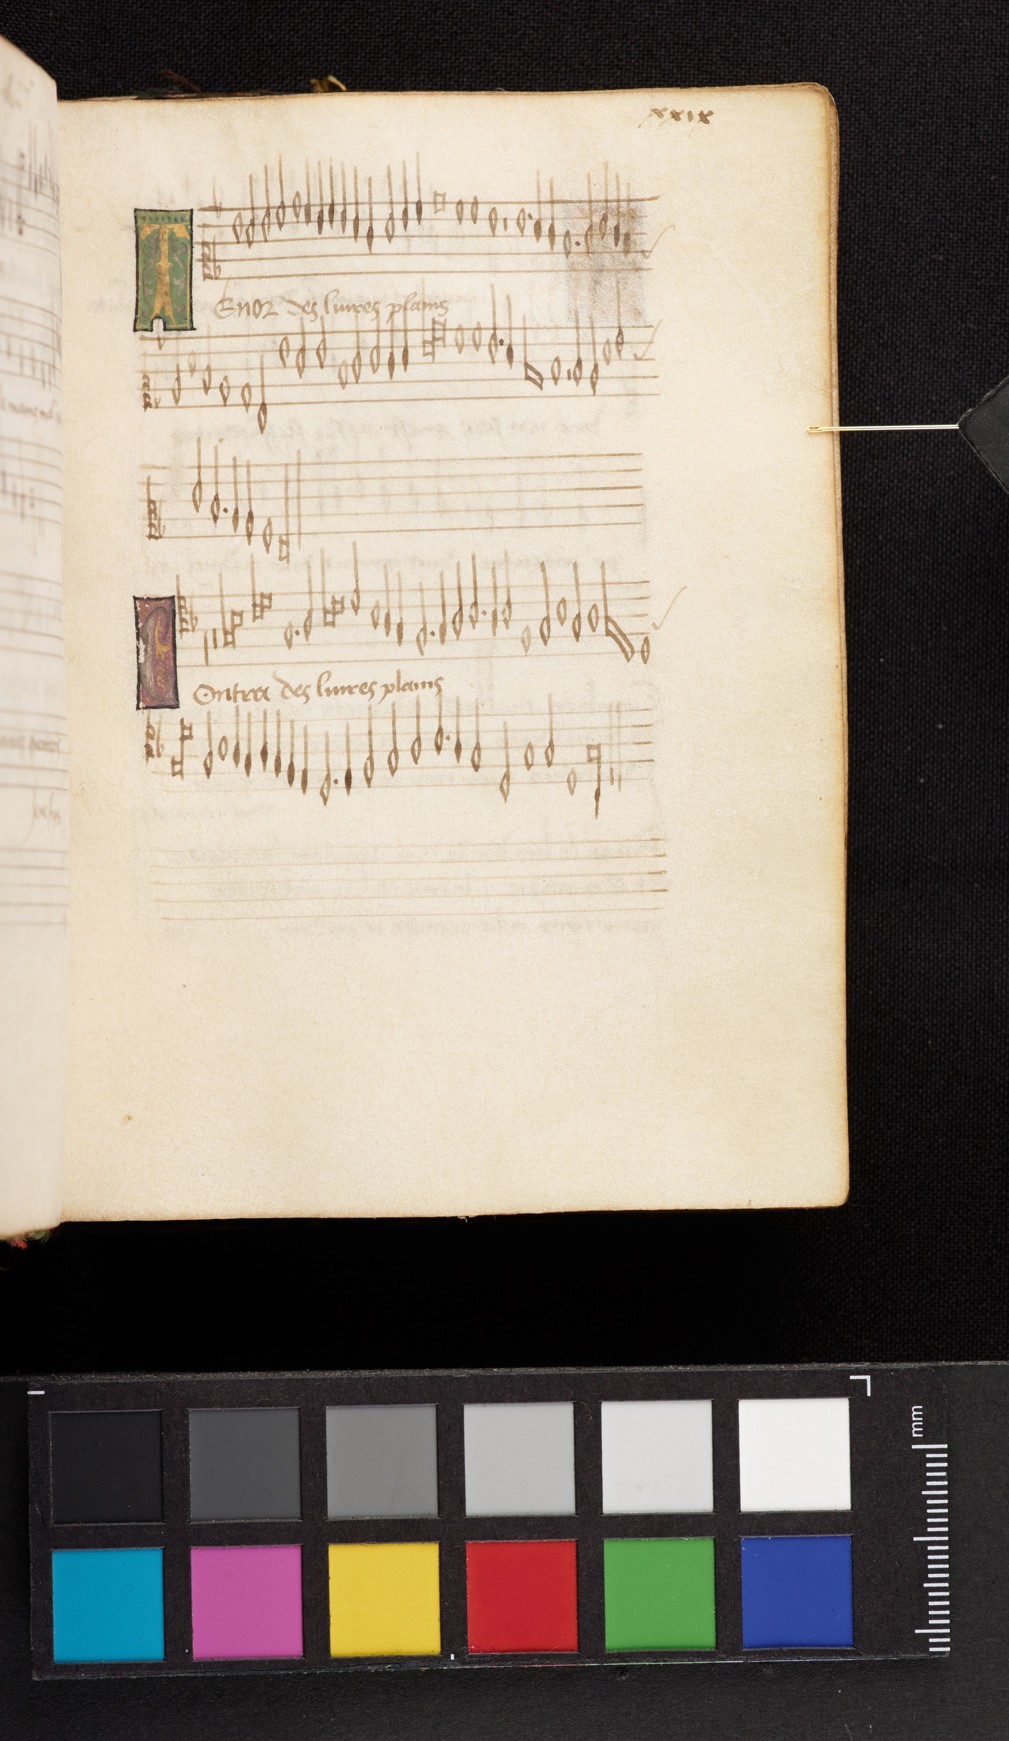 xxix
TEnor des liures plains
COntra des liures plains
mm